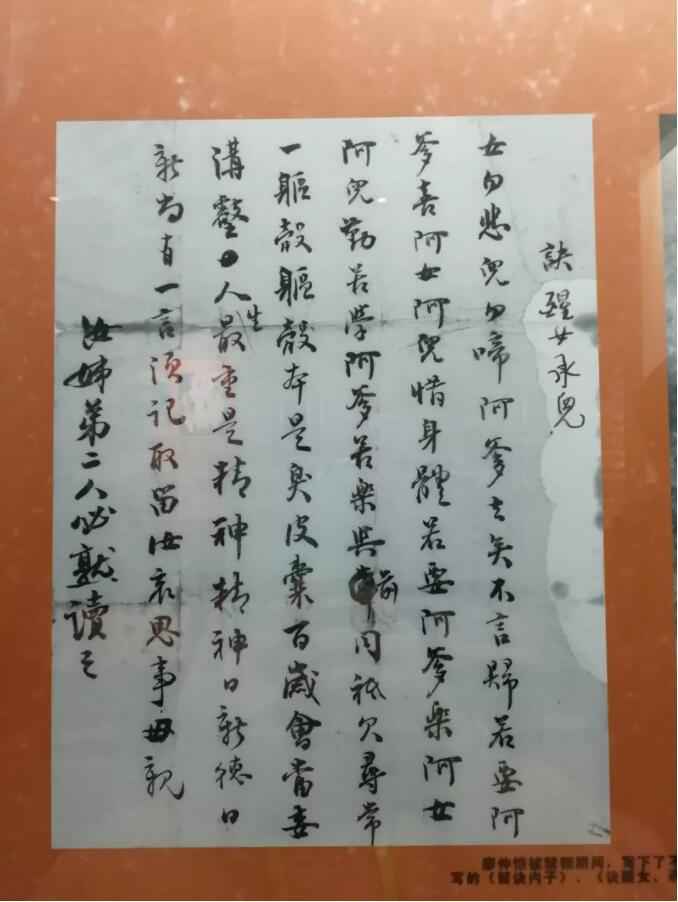 訣醒女承兒
女勿悲兒勿啼阿爹去矣不言歸若要阿
爹喜阿女阿兒惜身體若要阿爹樂阿女
阿兒勤苦學阿爹苦樂與前同祗欠尋常
一軀殼軀殼本是臭皮囊百歲會當委
溝壑人生最重是精神精神日新德日
新尚有一言須記取留汝哀思事母親
汝姊弟二人必熟讀之
廖仲恺被禁锢期间，写下了
写的《留诀内子》、《诀醒女、